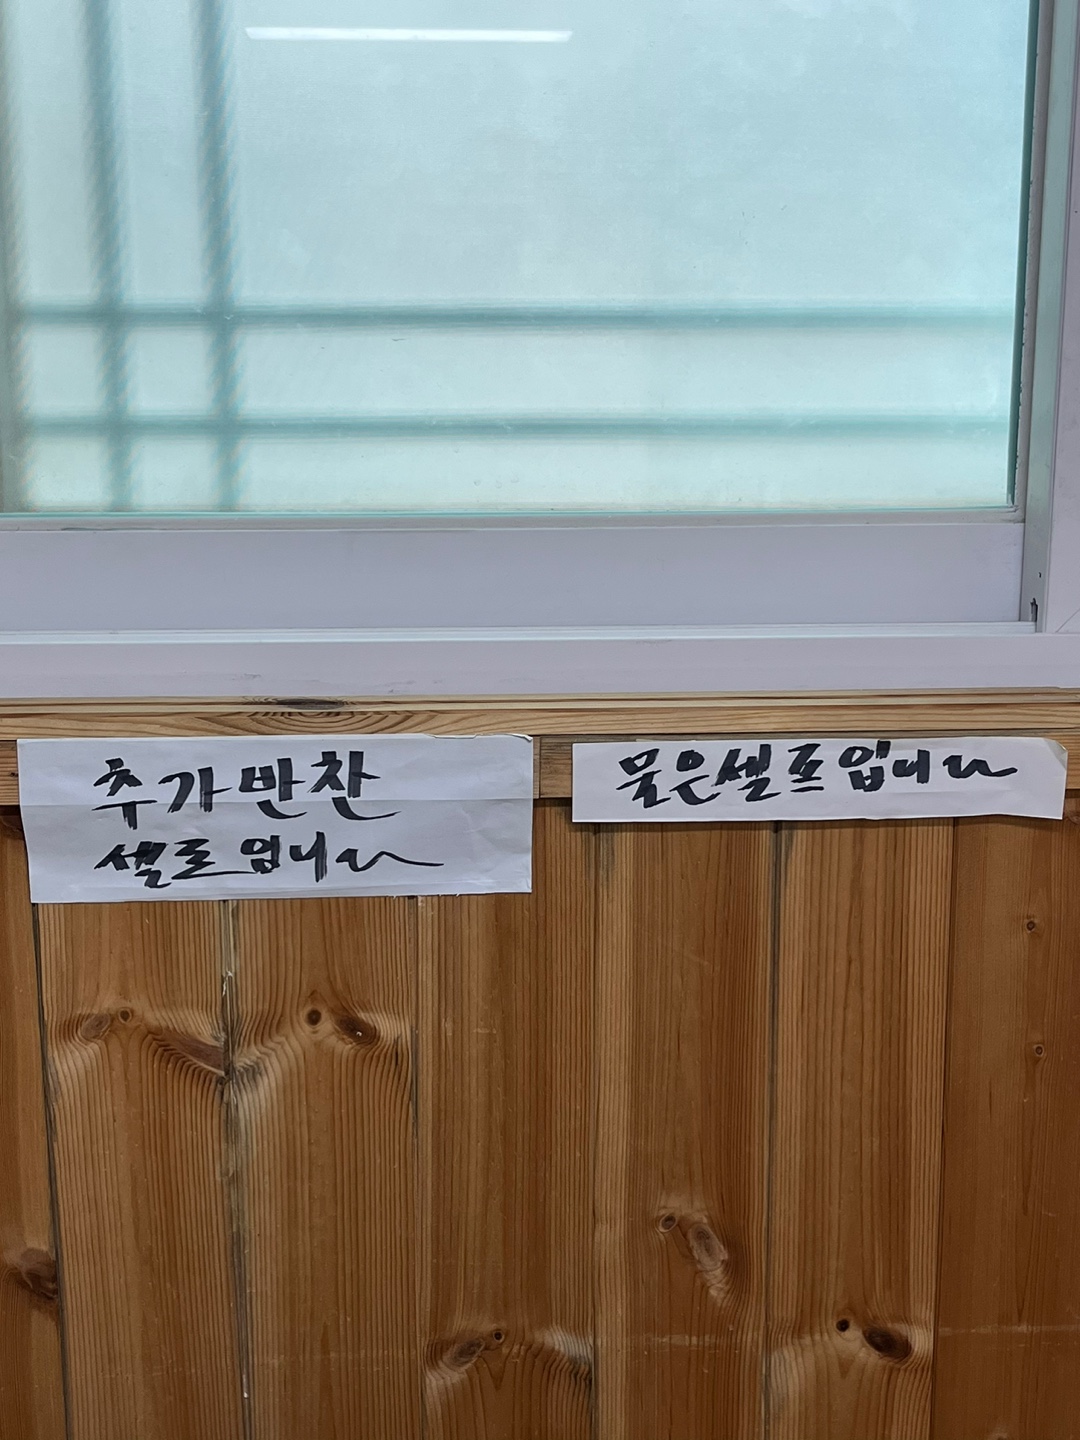 추가반찬
셀프입니다
물은셀프입니다